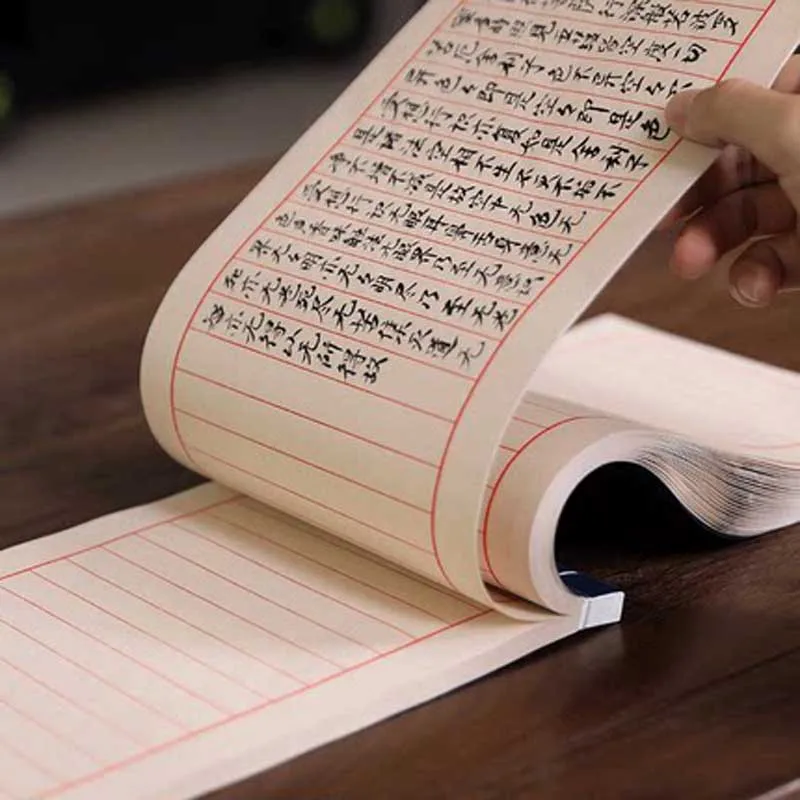 行深般若波罗
蜜多时照见五蕴皆空度一切
苦厄舍利子色不异空々不
异色々即是空々即是色
受想行识亦复如是舍利子
是诸法空相不生不灭不垢不
净不增不减是故空中无色无
受想行识无眼耳鼻舌身意无
色声香味触法无眼界乃至无意识
界无々明亦无々明尽乃至无老
死亦无老死尽无苦集灭道无
智亦无得以无所得故